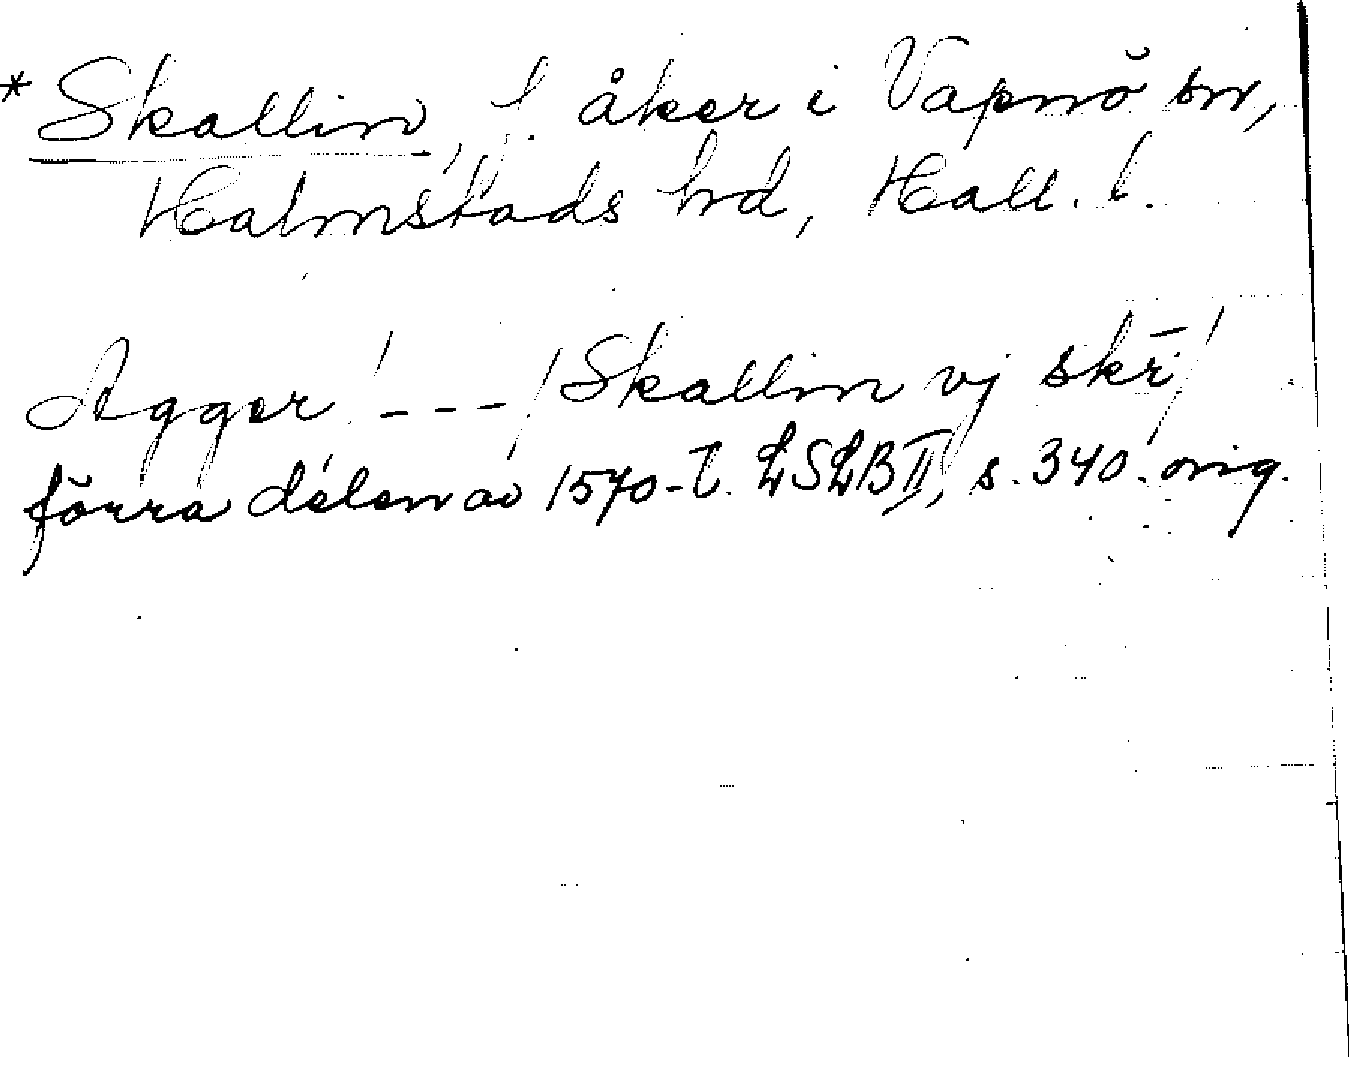 * Skallin, f. åker i Vapnö sn,
Halmstads hd, Hall. l.
Agger / - - - / Skallin vj skr̄ /
förra delen av 1570-t. LSLB II, s. 340. orig.